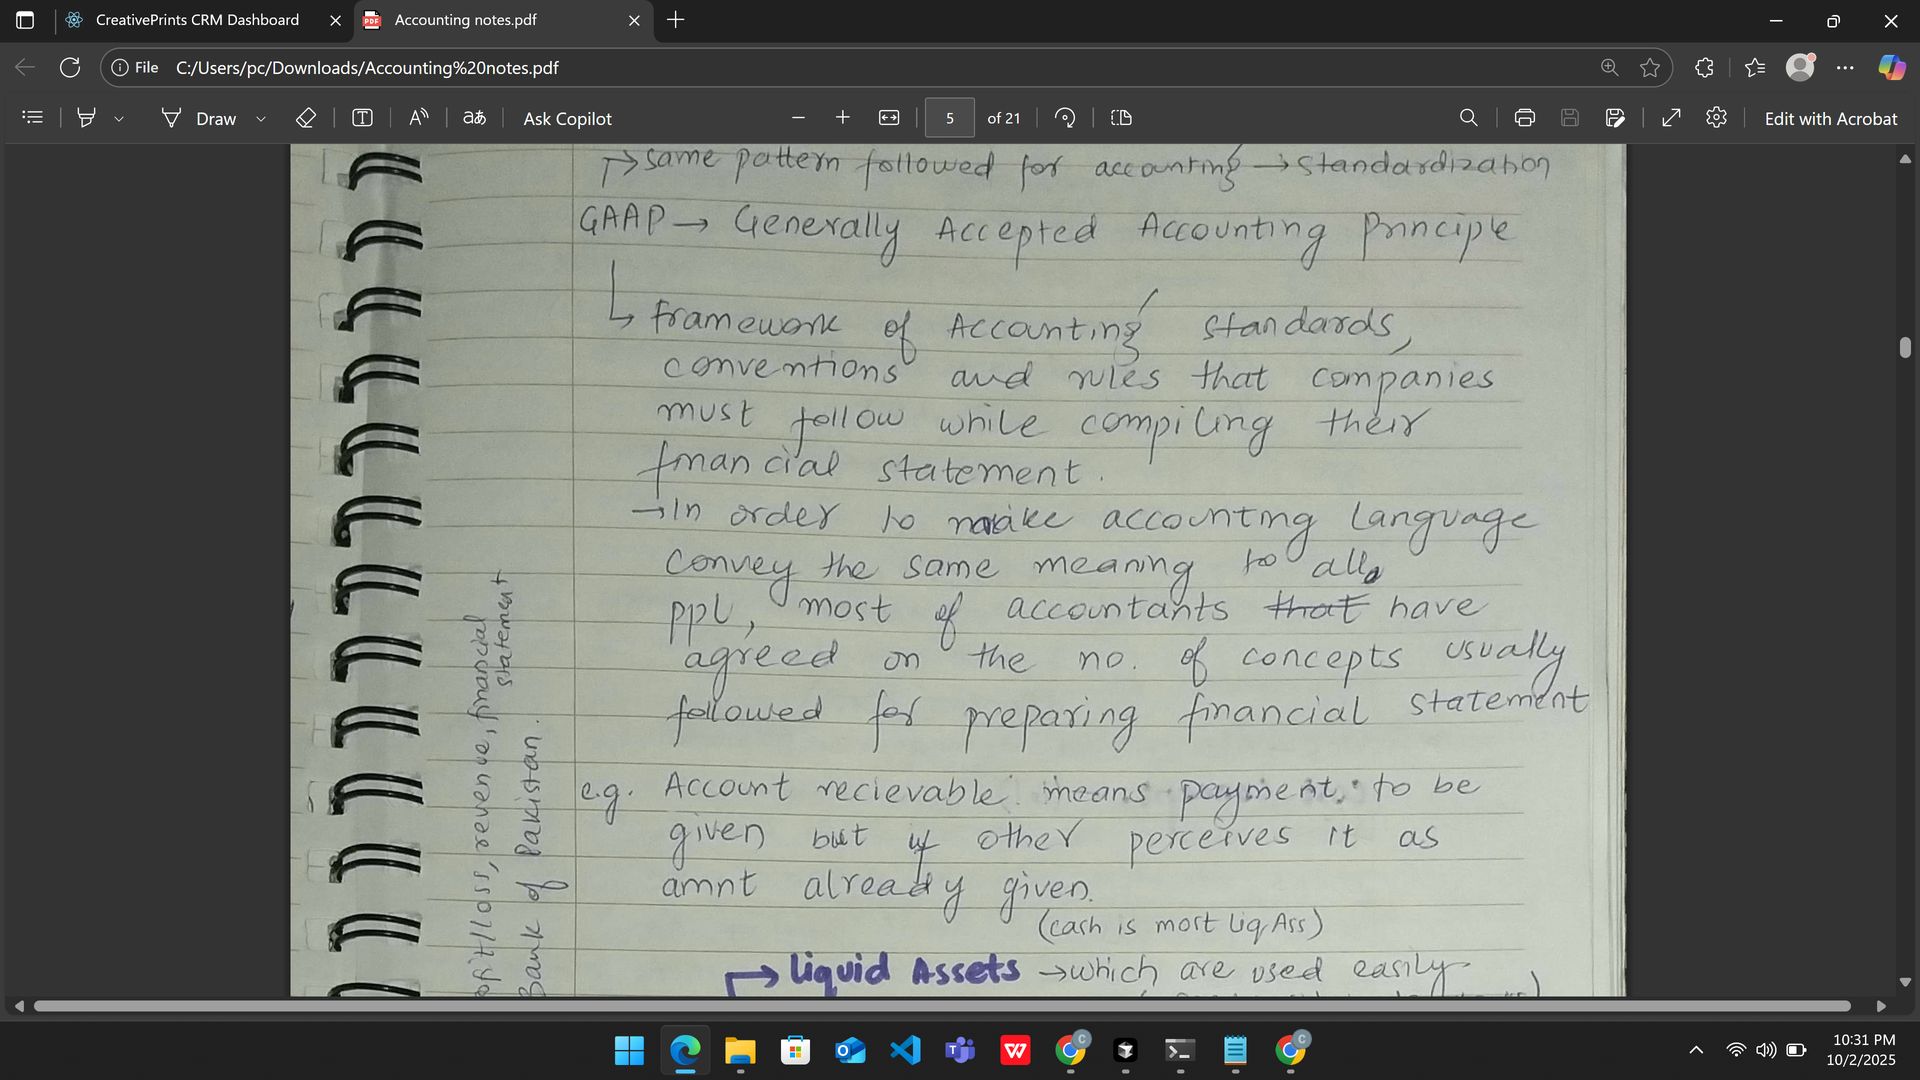 CreativePrints CRM Dashboard
Accounting notes.pdf
File C:/Users/pc/Downloads/Accounting%20notes.pdf
Draw
Ask Copilot
5 of 21
Edit with Acrobat
→ same pattern followed for accounting → standardization
GAAP → Generally Accepted Accounting Principle
↳ framework of Accounting standards,
conventions and rules that companies
must follow while compiling their
financial statement.
→ In order to make accounting language
convey the same meaning to all
ppl, most of accountants that have
agreed on the no. of concepts usually
followed for preparing financial statement
e.g. Account recievable means payment to be
given but if other perceives it as
amnt already given.
(cash is most Liq Ass)
→ liquid Assets → which are used easily
loss, revenue, financial
statement
Bank of Pakistan.
10:31 PM
10/2/2025